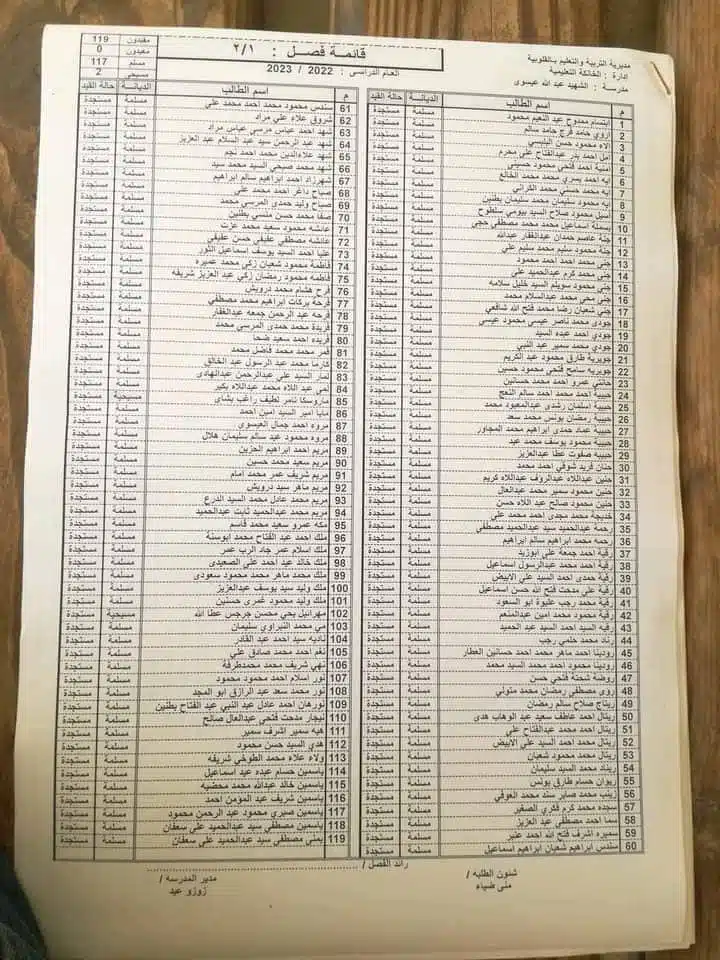 مديرية التربية والتعليم بالقلوبية
ادارة : الخانكة التعليمية
مدرسة : الشهيد عبد الله عيسوى
قائمة فصل : ٢/١
العام الدراسى : 2022 / 2023
مقيدون 119
مقيدون 0
مسلم 117
مسيحى 2
م اسم الطالب الديانة حالة القيد
1 ابتسام ممدوح عبد النعيم محمود مسلمة مستجدة
2 اروي حامد فرج حامد سالم مسلمة مستجدة
3 الاء محمود حسن البليسي مسلمة مستجدة
4 امل احمد بدر عبدالفتاح على محرم مسلمة مستجدة
5 امنية احمد فتحي محمود حسيني مسلمة مستجدة
6 ايه احمد يسري محمد محمد مسلمة مستجدة
7 ايه محمد حسني محمد الكرانى مسلمة مستجدة
8 ايه محمود سليمان محمد سليمان بطنين مسلمة مستجدة
9 اسيل محمود صلاح السيد بيومي سلطوح مسلمة مستجدة
10 بسملة اسماعيل محمد محمد مصطفى حجى مسلمة مستجدة
11 جنة عاصم حمدان عبدالغفار عبدالله مسلمة مستجدة
12 جنة محمود سليم محمد سليم على مسلمة مستجدة
13 جنى محمد احمد احمد محمود مسلمة مستجدة
14 جنى محمد كرم عبدالحميد على مسلمة مستجدة
15 جنى محمود سويلم السيد خليل سلامه مسلمة مستجدة
16 جنى محي محمد عبدالسلام محمد مسلمة مستجدة
17 جنى شعبان رضا محمد فتح الله شافعي مسلمة مستجدة
18 جودى محمد ناصر عيسى محمود عيسى مسلمة مستجدة
19 جودي احمد عبده السيد مسلمة مستجدة
20 جودي محمد سمير عبد النبي مسلمة مستجدة
21 جويرية طارق محمود عبد الكريم مسلمة مستجدة
22 جويرية سامح فتحي محمود حسين مسلمة مستجدة
23 عمرو احمد محمد حسانين مسلمة مستجدة
24 حبيبة احمد محمد احمد سالم النعج مسلمة مستجدة
25 حبيبة اسلمان رشدى عبدالمعبود محمد مسلمة مستجدة
26 حبيبة رمضان يونس محمد سعد مسلمة مستجدة
27 حبيبة عماد حمدى ابراهيم محمد المجاور مسلمة مستجدة
28 حبيبة محمد يوسف محمد عيد مسلمة مستجدة
29 حبيبه صفوت عطا عبدالعزيز مسلمة مستجدة
30 حنان فريد شوقي احمد محمد مسلمة مستجدة
31 حنين عبداللاه عبدالروف عبداللاه كريم مسلمة مستجدة
32 حنين محمود سمير محمد عبدالعال مسلمة مستجدة
33 حنين محمود صالح عبد اللاه حسن مسلمة مستجدة
34 خديجة محمد مجدى احمد محمد على مسلمة مستجدة
35 رحمه عبدالحميد سيد عبدالحميد مصطفى مسلمة مستجدة
36 رحمه محمد ابراهيم سالم ابراهيم مسلمة مستجدة
37 رقية احمد جمعة علي ابوزيد مسلمة مستجدة
38 رقية احمد محمد عبدالرسول اسماعيل مسلمة مستجدة
39 رقية حمدى احمد السيد على الابيض مسلمة مستجدة
40 رقية على مدحت فتح الله حسن اسماعيل مسلمة مستجدة
41 رقية محمد رجب عليوة ابو السعود مسلمة مستجدة
42 رقية محمود محمد امين عبدالمنعم مسلمة مستجدة
43 رقيه السيد احمد السيد عبد الحميد مسلمة مستجدة
44 رناد محمد حلمي رجب مسلمة مستجدة
45 رودينا احمد ماهر محمد احمد حسانين العطار مسلمة مستجدة
46 رودينا محمود احمد محمد السيد محمد مسلمة مستجدة
47 روضة شحته فتحي حسن مسلمة مستجدة
48 رؤى مصطفى رمضان محمد متولي مسلمة مستجدة
49 ريتاج صلاح سالم رمضان مسلمة مستجدة
50 ريتال احمد عاطف سعيد عبد الوهاب هدى مسلمة مستجدة
51 ريتال احمد محمد عبدالفتاح على مسلمة مستجدة
52 ريتال احمد محمد السيد على الابيض مسلمة مستجدة
53 ريتال محمد محمود شعبان مسلمة مستجدة
54 ريناد محمد السيد سليمان مسلمة مستجدة
55 ريوان حسام طارق يونس مسلمة مستجدة
56 زينب محمد صابر سند محمد العوفي مسلمة مستجدة
57 سجده محمد كرم فكري الصغير مسلمة مستجدة
58 سما احمد مصطفى عبد العزيز مسلمة مستجدة
59 سميره اشرف فتح الله احمد عنبر مسلمة مستجدة
60 سندس ابراهيم شعبان ابراهيم اسماعيل مسلمة مستجدة
م اسم الطالب الديانة حالة القيد
61 سندس محمود محمد احمد محمد على مسلمة مستجدة
62 شروق علاء على مراد مسلمة مستجدة
63 شهد احمد عباس مرسى عباس مراد مسلمة مستجدة
64 شهد عبد الرحمن سيد عبد السلام عبد العزيز مسلمة مستجدة
65 شهد علاءالدين محمد احمد نجم مسلمة مستجدة
66 شهد محمد صبحي السيد محمد سيد مسلمة مستجدة
67 شهرزاد احمد ابراهيم سالم ابراهيم مسلمة مستجدة
68 صباح داغر احمد محمد على مسلمة مستجدة
69 صباح وليد حمدى المرسى محمد مسلمة مستجدة
70 صفا محمد حسن منسي بطنين مسلمة مستجدة
71 عائشه محمود سعيد محمد عزت مسلمة مستجدة
72 عائشه مصطفى عفيفي حسن عفيفي مسلمة مستجدة
73 عليا احمد السيد يوسف اسماعيل النور مسلمة مستجدة
74 فاطمة محمود شعبان زكى محمد عميره مسلمة مستجدة
75 فاطمه محمود رمضان زكي عبد العزيز شريفه مسلمة مستجدة
76 فرح هشام محمد درويش مسلمة مستجدة
77 فرحة بركات ابراهيم محمد مصطفي مسلمة مستجدة
78 فرحه عبد الرحمن جمعه عبدالغفار مسلمة مستجدة
79 فريدة محمد حمدى المرسى محمد مسلمة مستجدة
80 فريده احمد سعيد ضحا مسلمة مستجدة
81 قمر محمد محمد فاضل محمد مسلمة مستجدة
82 كارما محمد عبد الرسول عبد الخالق مسلمة مستجدة
83 السيد على عبدالرحمن عبدالهادى مسلمة مستجدة
84 لمى عبد اللاه محمد عبداللاه بكير مسلمة مستجدة
85 ماروسكا تامر لطيف راغب بشاى مسيحية مستجدة
86 مايا امير السيد امين احمد مسلمة مستجدة
87 مروه احمد جمال العيسوى مسلمة مستجدة
88 مروه محمود عبد سالم سليمان هلال مسلمة مستجدة
89 مريم احمد ابراهيم الحزين مسلمة مستجدة
90 مريم سعيد محمد حسين مسلمة مستجدة
91 مريم شريف عمر محمد امام مسلمة مستجدة
92 مريم ماهر سيد درويش مسلمة مستجدة
93 مريم محمد عادل محمد السيد الدرع مسلمة مستجدة
94 مريم محمد عبدالحميد ثابت عبدالحميد مسلمة مستجدة
95 مكه عمرو سعيد محمد قاسم مسلمة مستجدة
96 ملك احمد عبد الفتاح محمد ابوسنة مسلمة مستجدة
97 ملك اسلام عمر جاد الرب عمر مسلمة مستجدة
98 ملك خالد عيد احمد على الصعيدى مسلمة مستجدة
99 ملك محمد ماهر محمد محمود سعودى مسلمة مستجدة
100 ملك وليد سيد يوسف عبدالعزيز مسلمة مستجدة
101 ملك وليد محمود غمرى حسنين مسلمة مستجدة
102 مهرائيل يحي محسن جرجس عطا الله مسيحية مستجدة
103 مي محمد النبراوي سليمان مسلمة مستجدة
104 ناديه سيد احمد عبد القادر مسلمة مستجدة
105 نغم احمد محمد صادق على مسلمة مستجدة
106 نهي شريف محمد محمدطرفة مسلمة مستجدة
107 نور اسلام احمد محمود محمود مسلمة مستجدة
108 نور محمد سعد عبد الرازق ابو المجد مسلمة مستجدة
109 نورهان احمد عادل عبد النبي عبد الفتاح بطنين مسلمة مستجدة
110 نيجار مدحت فتحي عبدالعال صالح مسلمة مستجدة
111 هيه سمير اشرف سمير مسلمة مستجدة
112 هدي السيد حسن محمود مسلمة مستجدة
113 ولاء علاء محمد الطوخي شريفه مسلمة مستجدة
114 ياسمين حسام عبده عيد اسماعيل مسلمة مستجدة
115 ياسمين خالد عبدالله محمد محضيه مسلمة مستجدة
116 ياسمين شريف عبد المؤمن احمد مسلمة مستجدة
117 ياسمين صبري محمود عبد الرحمن محمود مسلمة مستجدة
118 ياسمين مصطفي سيد عبدالحميد علي سعفان مسلمة مستجدة
119 يمنى مصطفي سيد عبدالحميد على سعفان مسلمة مستجدة
شئون الطلبه /
منى ضياء
رائد الفصل /
مدير المدرسه /
زوزو عيد